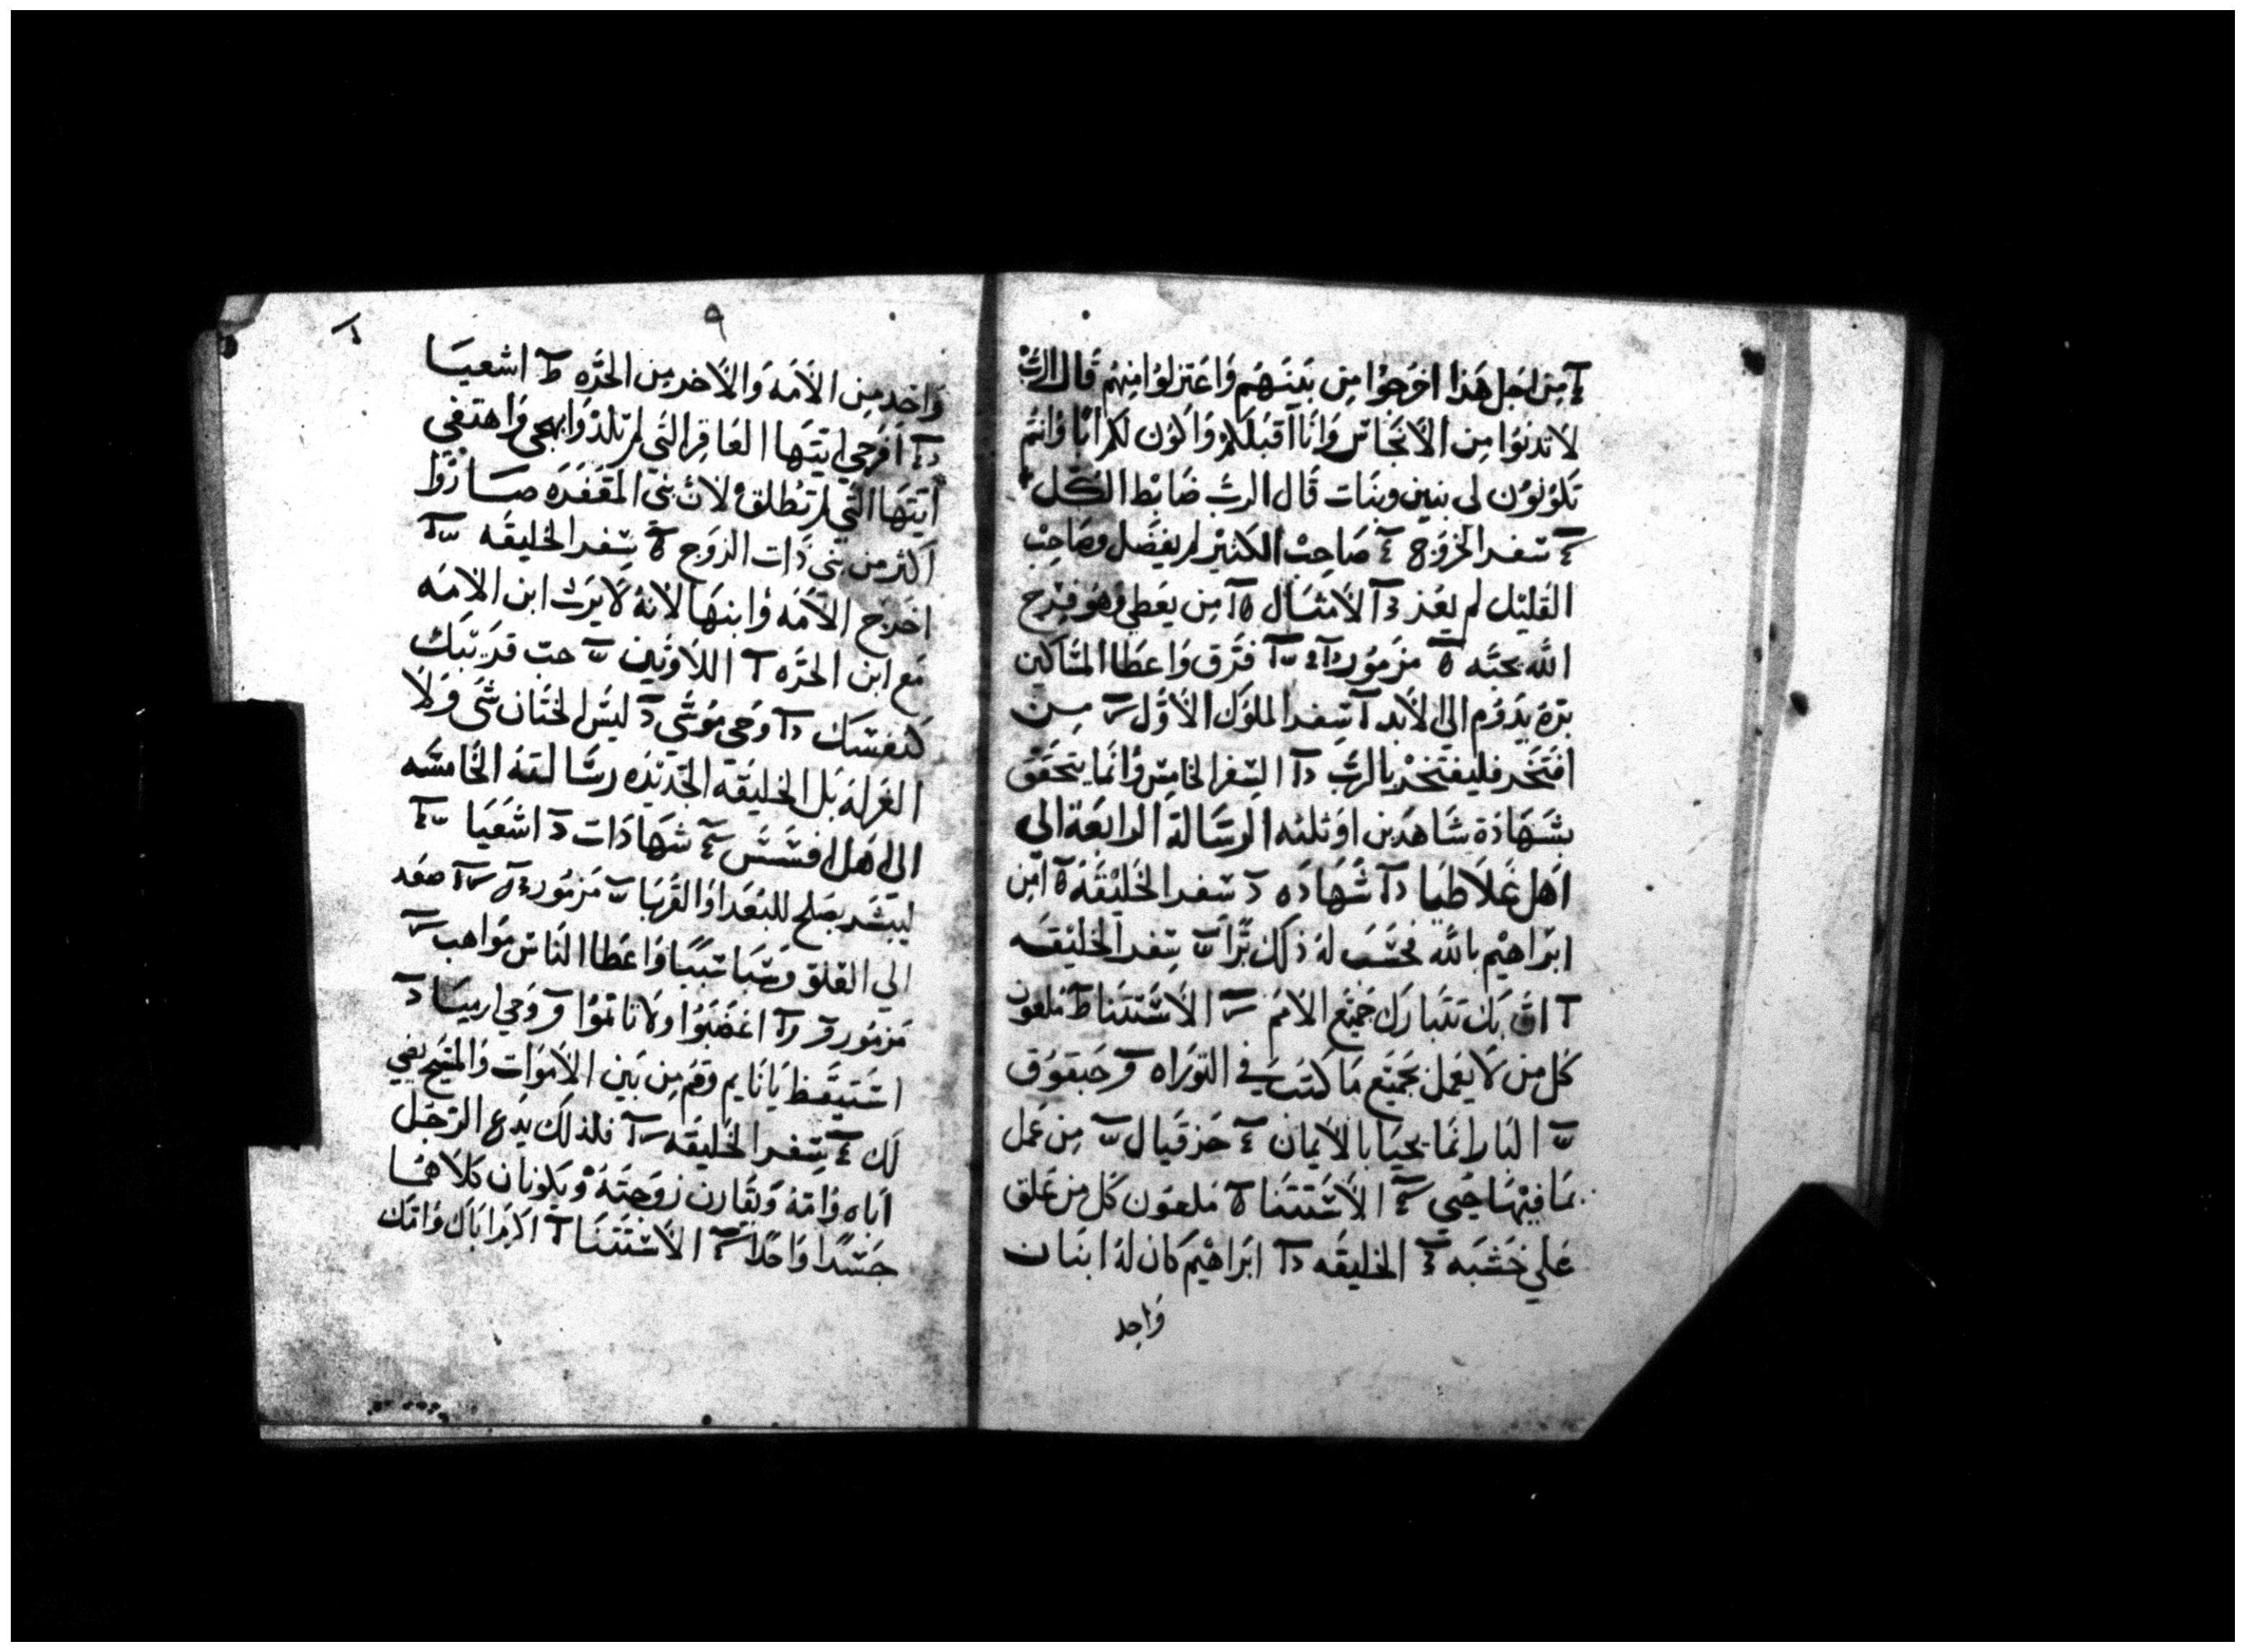 من اجل هذا اخرجوا من بينهم واعتزلوا منهم قال الرب
لا تدنوا من الانجاس وانا اقبلكم واكون لكم ابا وانتم
تكونون لى بنين وبنات قال الرب ضابط الكل
سفر الخروج صاحب الكثير لم يفضل وصاحب
القليل لم يعز الامثال من يعطي وهو فرح
الله يحبه مزمور فرق واعطا المساكين
بره يدوم الى الابد سفر الملوك الاول من
افتخر فليفتخر بالرب السفر الخامس وانما يتحقق
بشهادة شاهدين او ثلثه الرسالة الرابعة الى
اهل غلاطيا شهاده سفر الخليقه امن
ابراهيم بالله فحسب له ذلك برا سفر الخليقه
ان بك تتبارك جميع الامم الاستتنا ملعون
كل من لا يعمل بجميع ما كتب في التوراه حبقوق
البار انما يحيا بالايمان حزقيال من عمل
بما فيها حيي الاستتنا ملعون كل من علق
علي خشبه الخليقه ابراهيم كان له ابنان
واحد
٩
واحد من الامه والاخر من الحره اشعيا
افرحي ايتها العاقر التي لم تلد وابهجي واهتفي
ايتها التي لم تطلق لان بني المقفره صاروا
اكثر من بني ذات الزوج سفر الخليقه
اخرج الامه وابنها لانه لا يرث ابن الامه
مع ابن الحره اللاويين حب قريبك
كنفسك وحي موسي ليس الختان شي ولا
الغرله بل الخليقه الجديده رسالته الخامسه
الى اهل افسس شهادات اشعيا
ليبشر بصلح للبعدا والقربا مزمور صعد
الي العلو وسبا سبيا واعطا الناس مواهب
مزمور اغضبوا ولا تاتموا وحي ارميا
استيقظ يا نايم وقم من بين الاموات والمسيح يضي
لك سفر الخليقه فلذلك يدع الرجل
اباه وامه ويقارن زوجته ويكونان كلاهما
جسدا واحدا الاستتنا اكرم اباك وامك